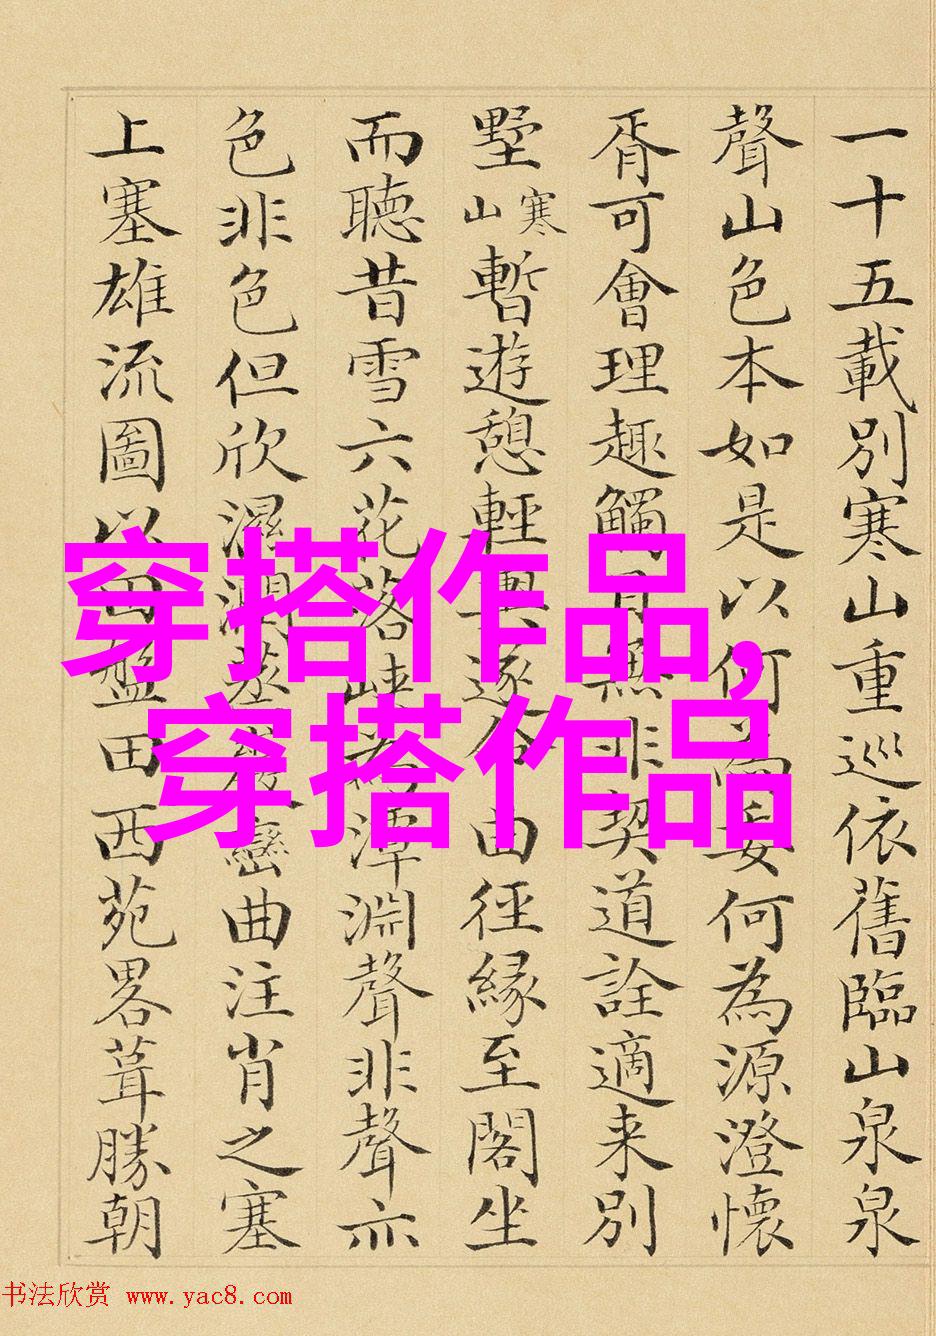 一十五載別寒山重巡依舊臨山泉泉
聲山色本如是以何為妄何為源澄懷
胥可會理趣觸目無非契道詮適来別
墅寒山暫遊憩輕輿遂命由徑緣至閣坐
而聽昔雪六花落峽為潭淵聲非聲亦
色非色但欣濕潤蒸巒曲注肖之塞
上塞雄流圖以田盤田西苑畧葺勝朝
穿搭作品,
穿搭作品
书法欣赏 www.yac8.com